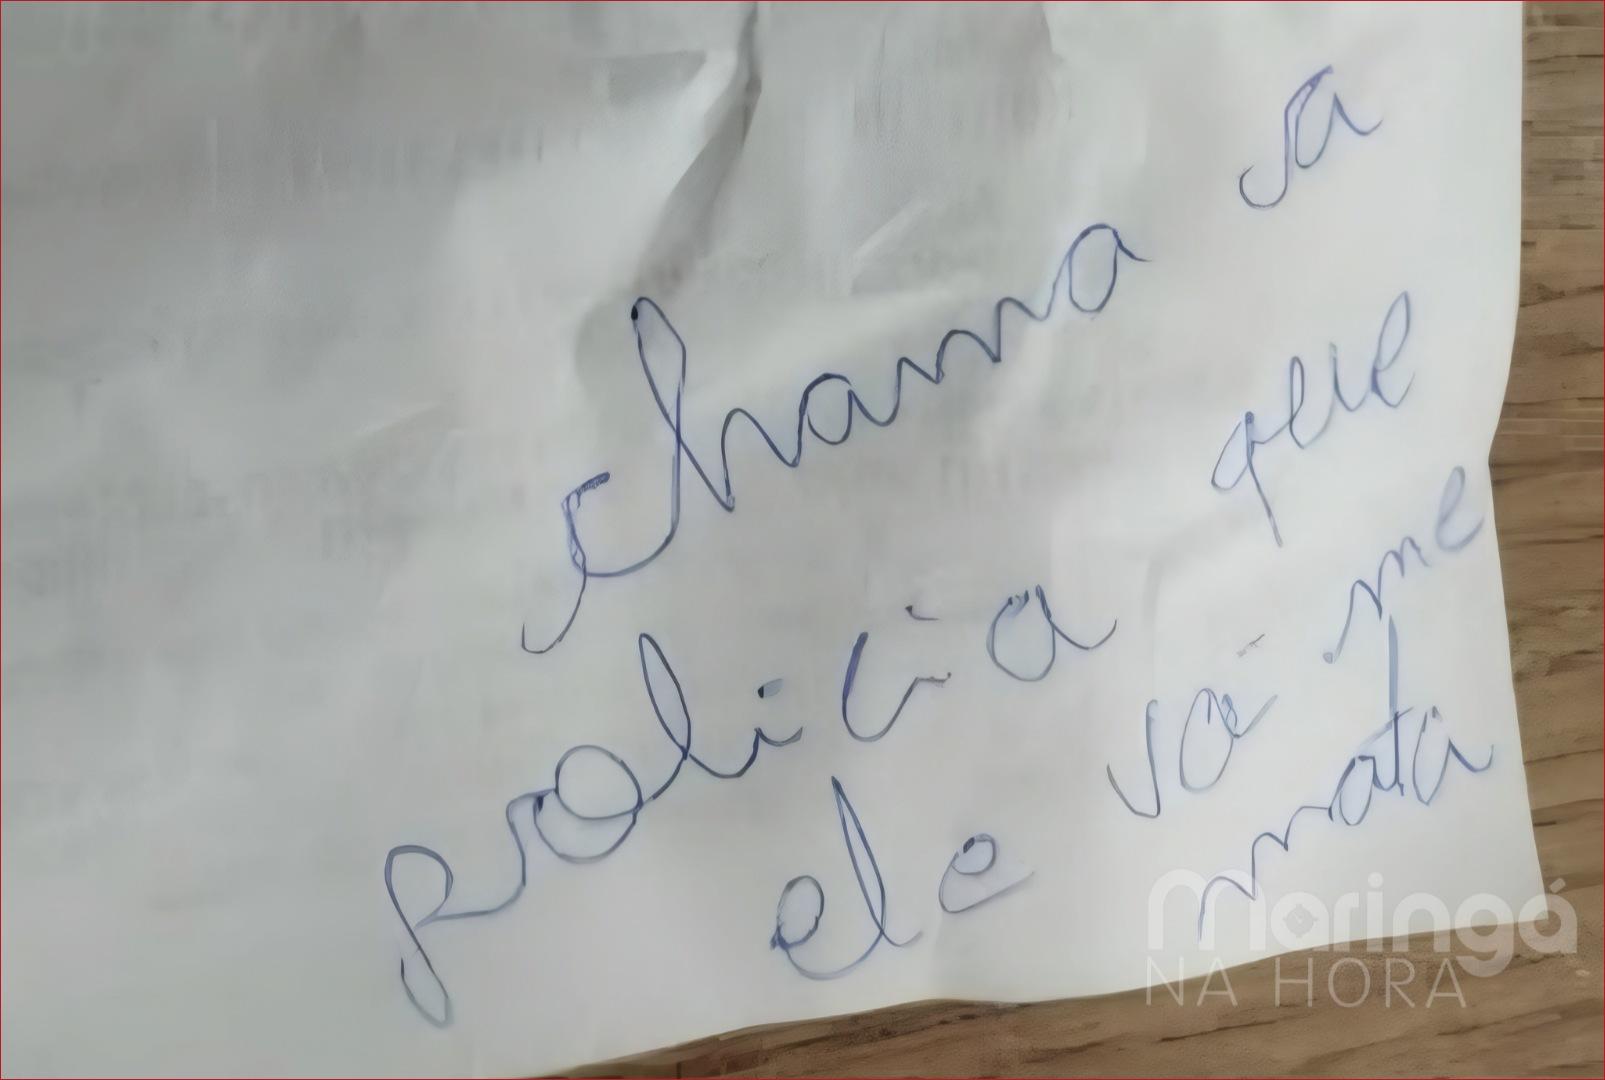 chama a
policia que
ele vai me
mata
Maringá
NA HORA